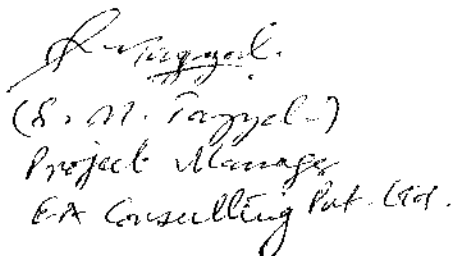 (S. M. Tayyel)
Project Manager
EA Consulting Pvt. Ltd.